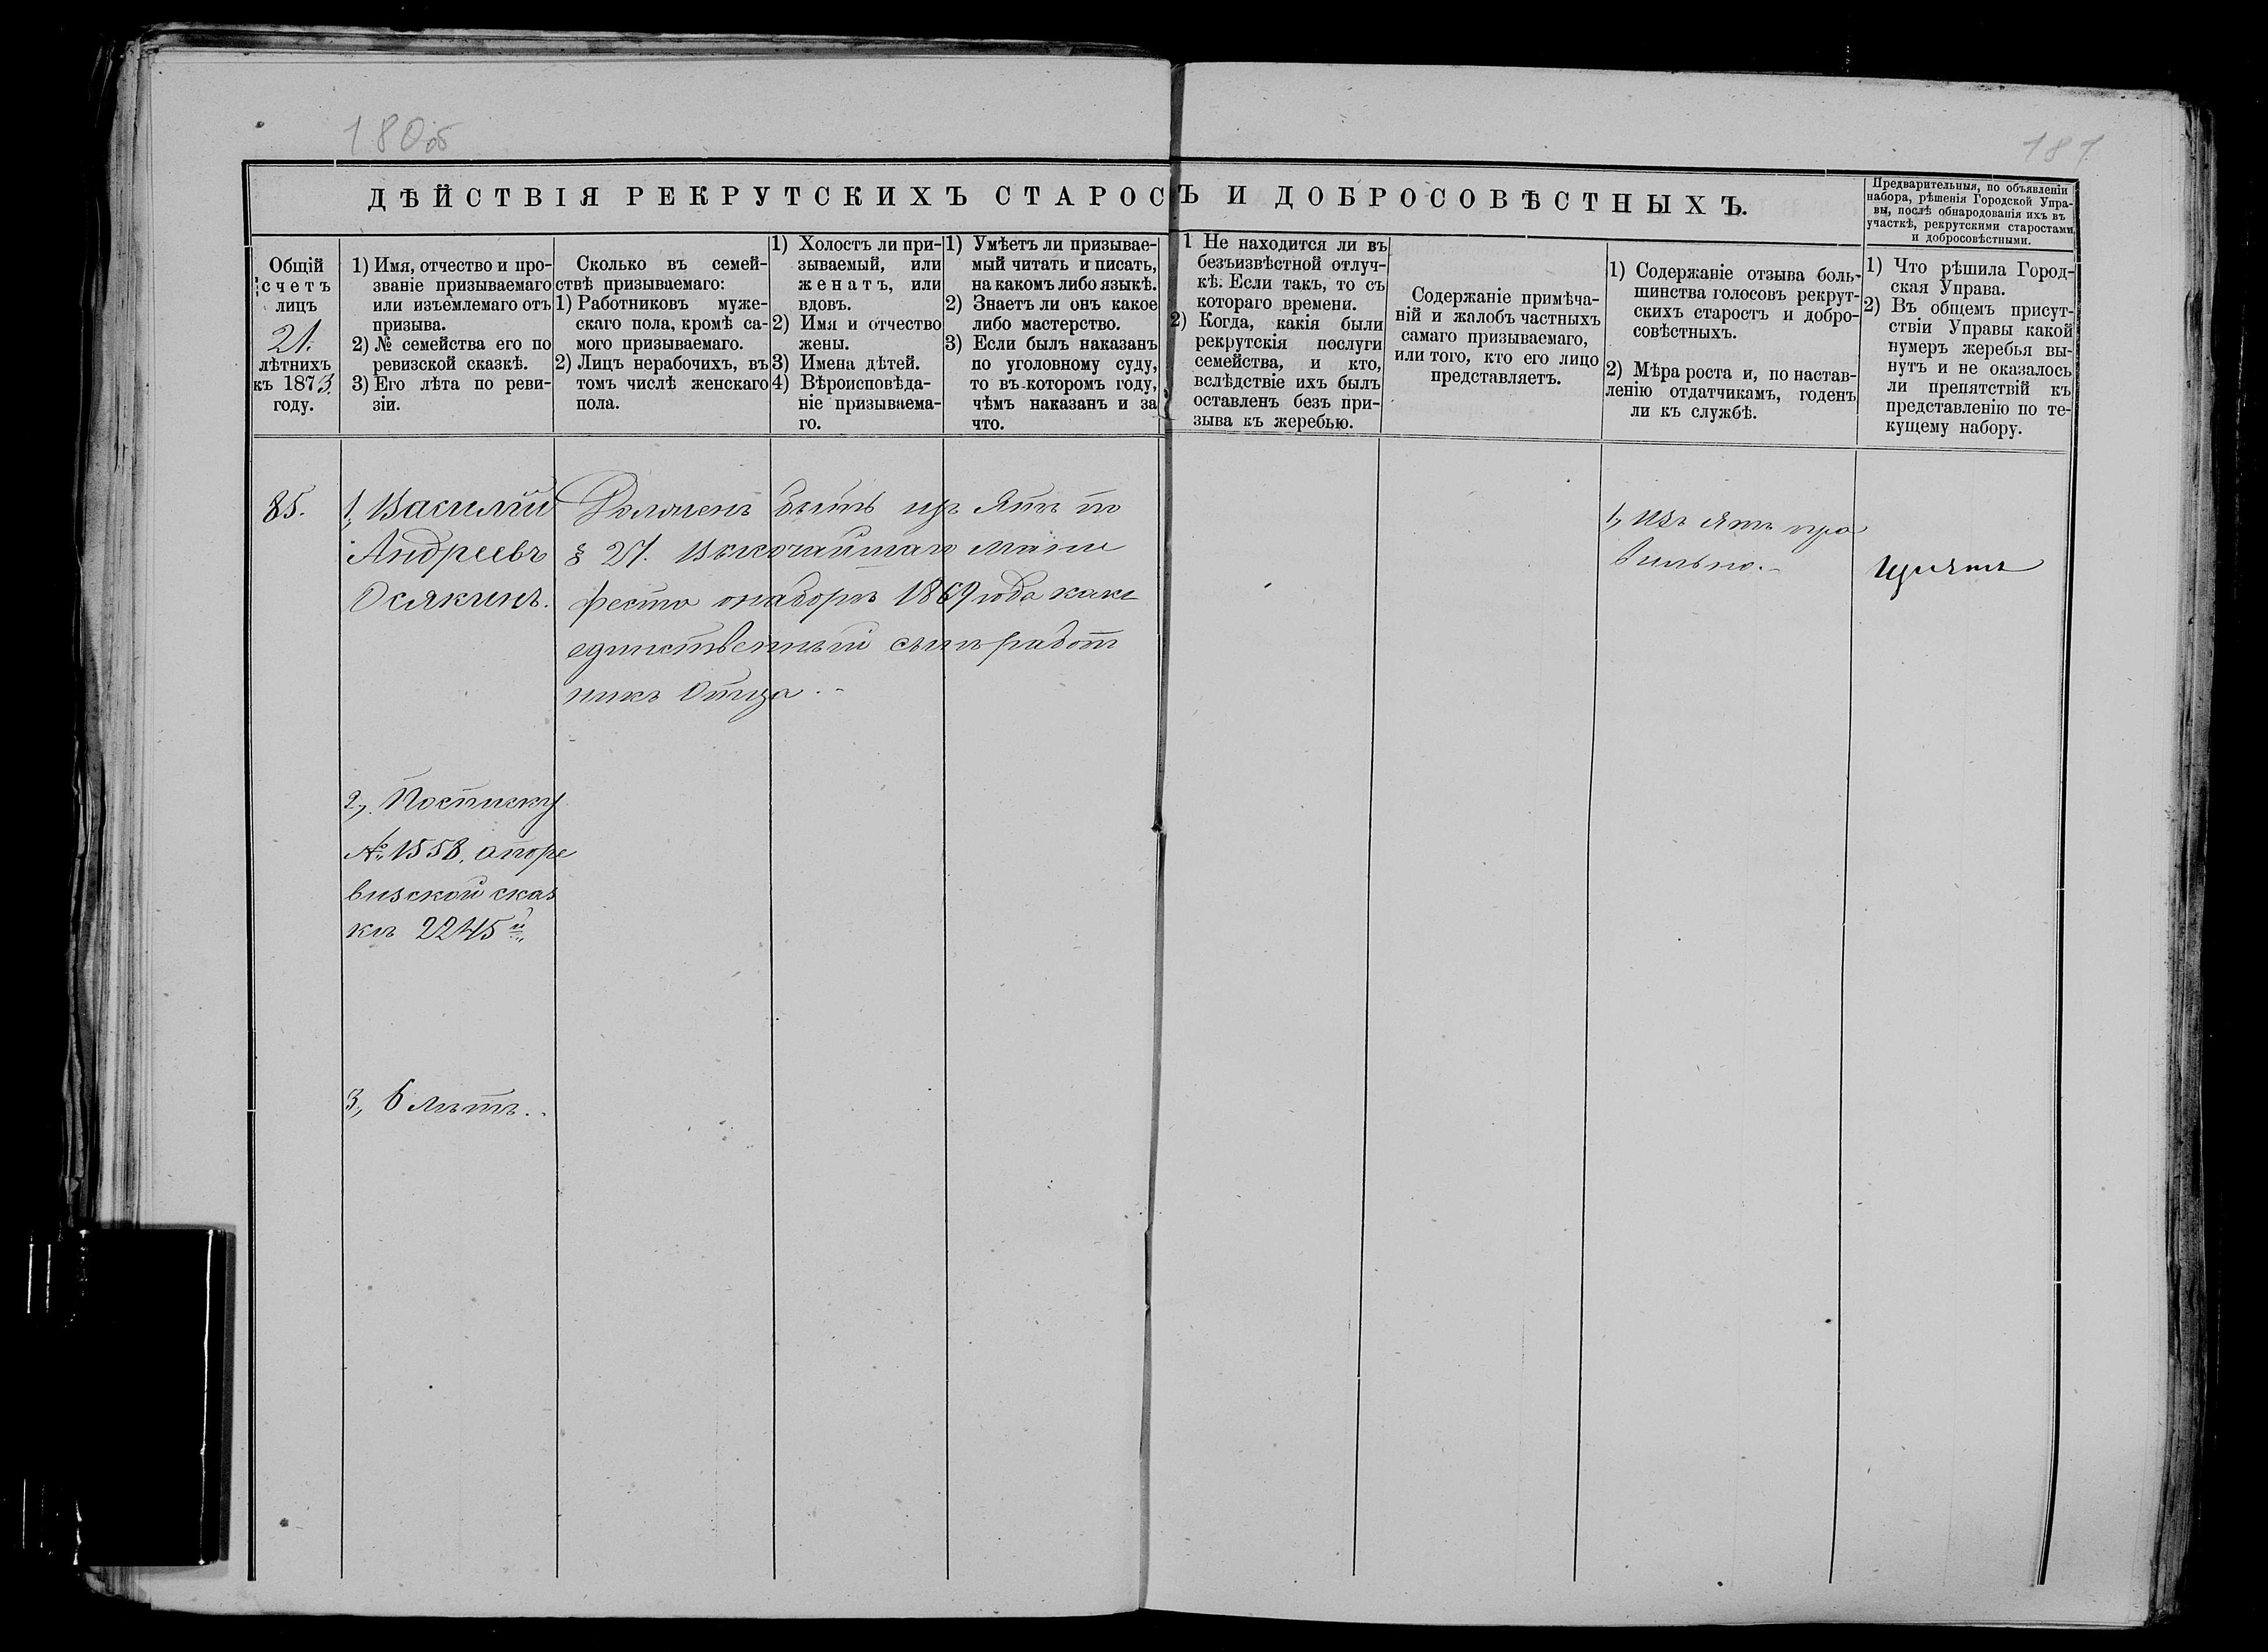 180об
181
ДѢЙСТВІЯ РЕКРУТСКИХЪ СТАРОСТЪ И ДОБРОСОВѢСТНЫХЪ.
Предварительныя, по объявленіи
набора, рѣшенія Городской Упра-
вы, послѣ обнародованія ихъ въ
участкѣ, рекрутскими старостами
и добросовѣстными.
Общій
счетъ
лицъ
21.
лѣтнихъ
къ 1873.
году.
1) Имя, отчество и про-
званіе призываемаго
или изъемлемаго отъ
призыва.
2) № семейства его по
ревизской сказкѣ.
3) Его лѣта по реви-
зіи.
Сколько въ семей-
ствѣ призываемаго:
1) Работниковъ муже-
скаго пола, кромѣ са-
мого призываемаго.
2) Лицъ нерабочихъ, въ
томъ числѣ женскаго
пола.
1) Холостъ ли при-
зываемый, или
женатъ, или
вдовъ.
2) Имя и отчество
жены.
3) Имена дѣтей.
4) Вѣроисповѣда-
ніе призываема-
го.
1) Умѣетъ ли призывае-
мый читать и писать,
на какомъ либо языкѣ.
2) Знаетъ ли онъ какое
либо мастерство.
3) Если былъ наказанъ
по уголовному суду,
то въ которомъ году,
чѣмъ наказанъ и за
что.
1 Не находится ли въ
безъизвѣстной отлуч-
кѣ. Если такъ, то съ
котораго времени.
2) Когда, какія были
рекрутскія послуги
семейства, и кто,
вслѣдствіе ихъ былъ
оставленъ безъ при-
зыва къ жеребью.
Содержаніе примѣча-
ній и жалобъ частныхъ
самаго призываемаго,
или того, кто его лицо
представляетъ.
1) Содержаніе отзыва боль-
шинства голосовъ рекрут-
скихъ старостъ и добро-
совѣстныхъ.
2) Мѣра роста и, по настав-
ленію отдатчикамъ, годенъ
ли къ службѣ.
1) Что рѣшила Город-
ская Управа.
2) Въ общемъ присут-
ствіи Управы какой
нумеръ жеребья вы-
нутъ и не оказалось
ли препятствій къ
представленію по те-
кущему набору.
85.
1, Василій
Андреевъ
Осякинъ.
2,. Посписку
№ 1558. апоре
визской сказ
кѣ 2245й
3, 6 лѣтъ.
Долженъ быть изъ ятъ по
§ 21. Высочайшаго мани
феста онаборѣ 1869 года какъ
единственный сынъ работ
никъ Отца.
1, Изъ ятъ пра
вильно.
Изъятъ